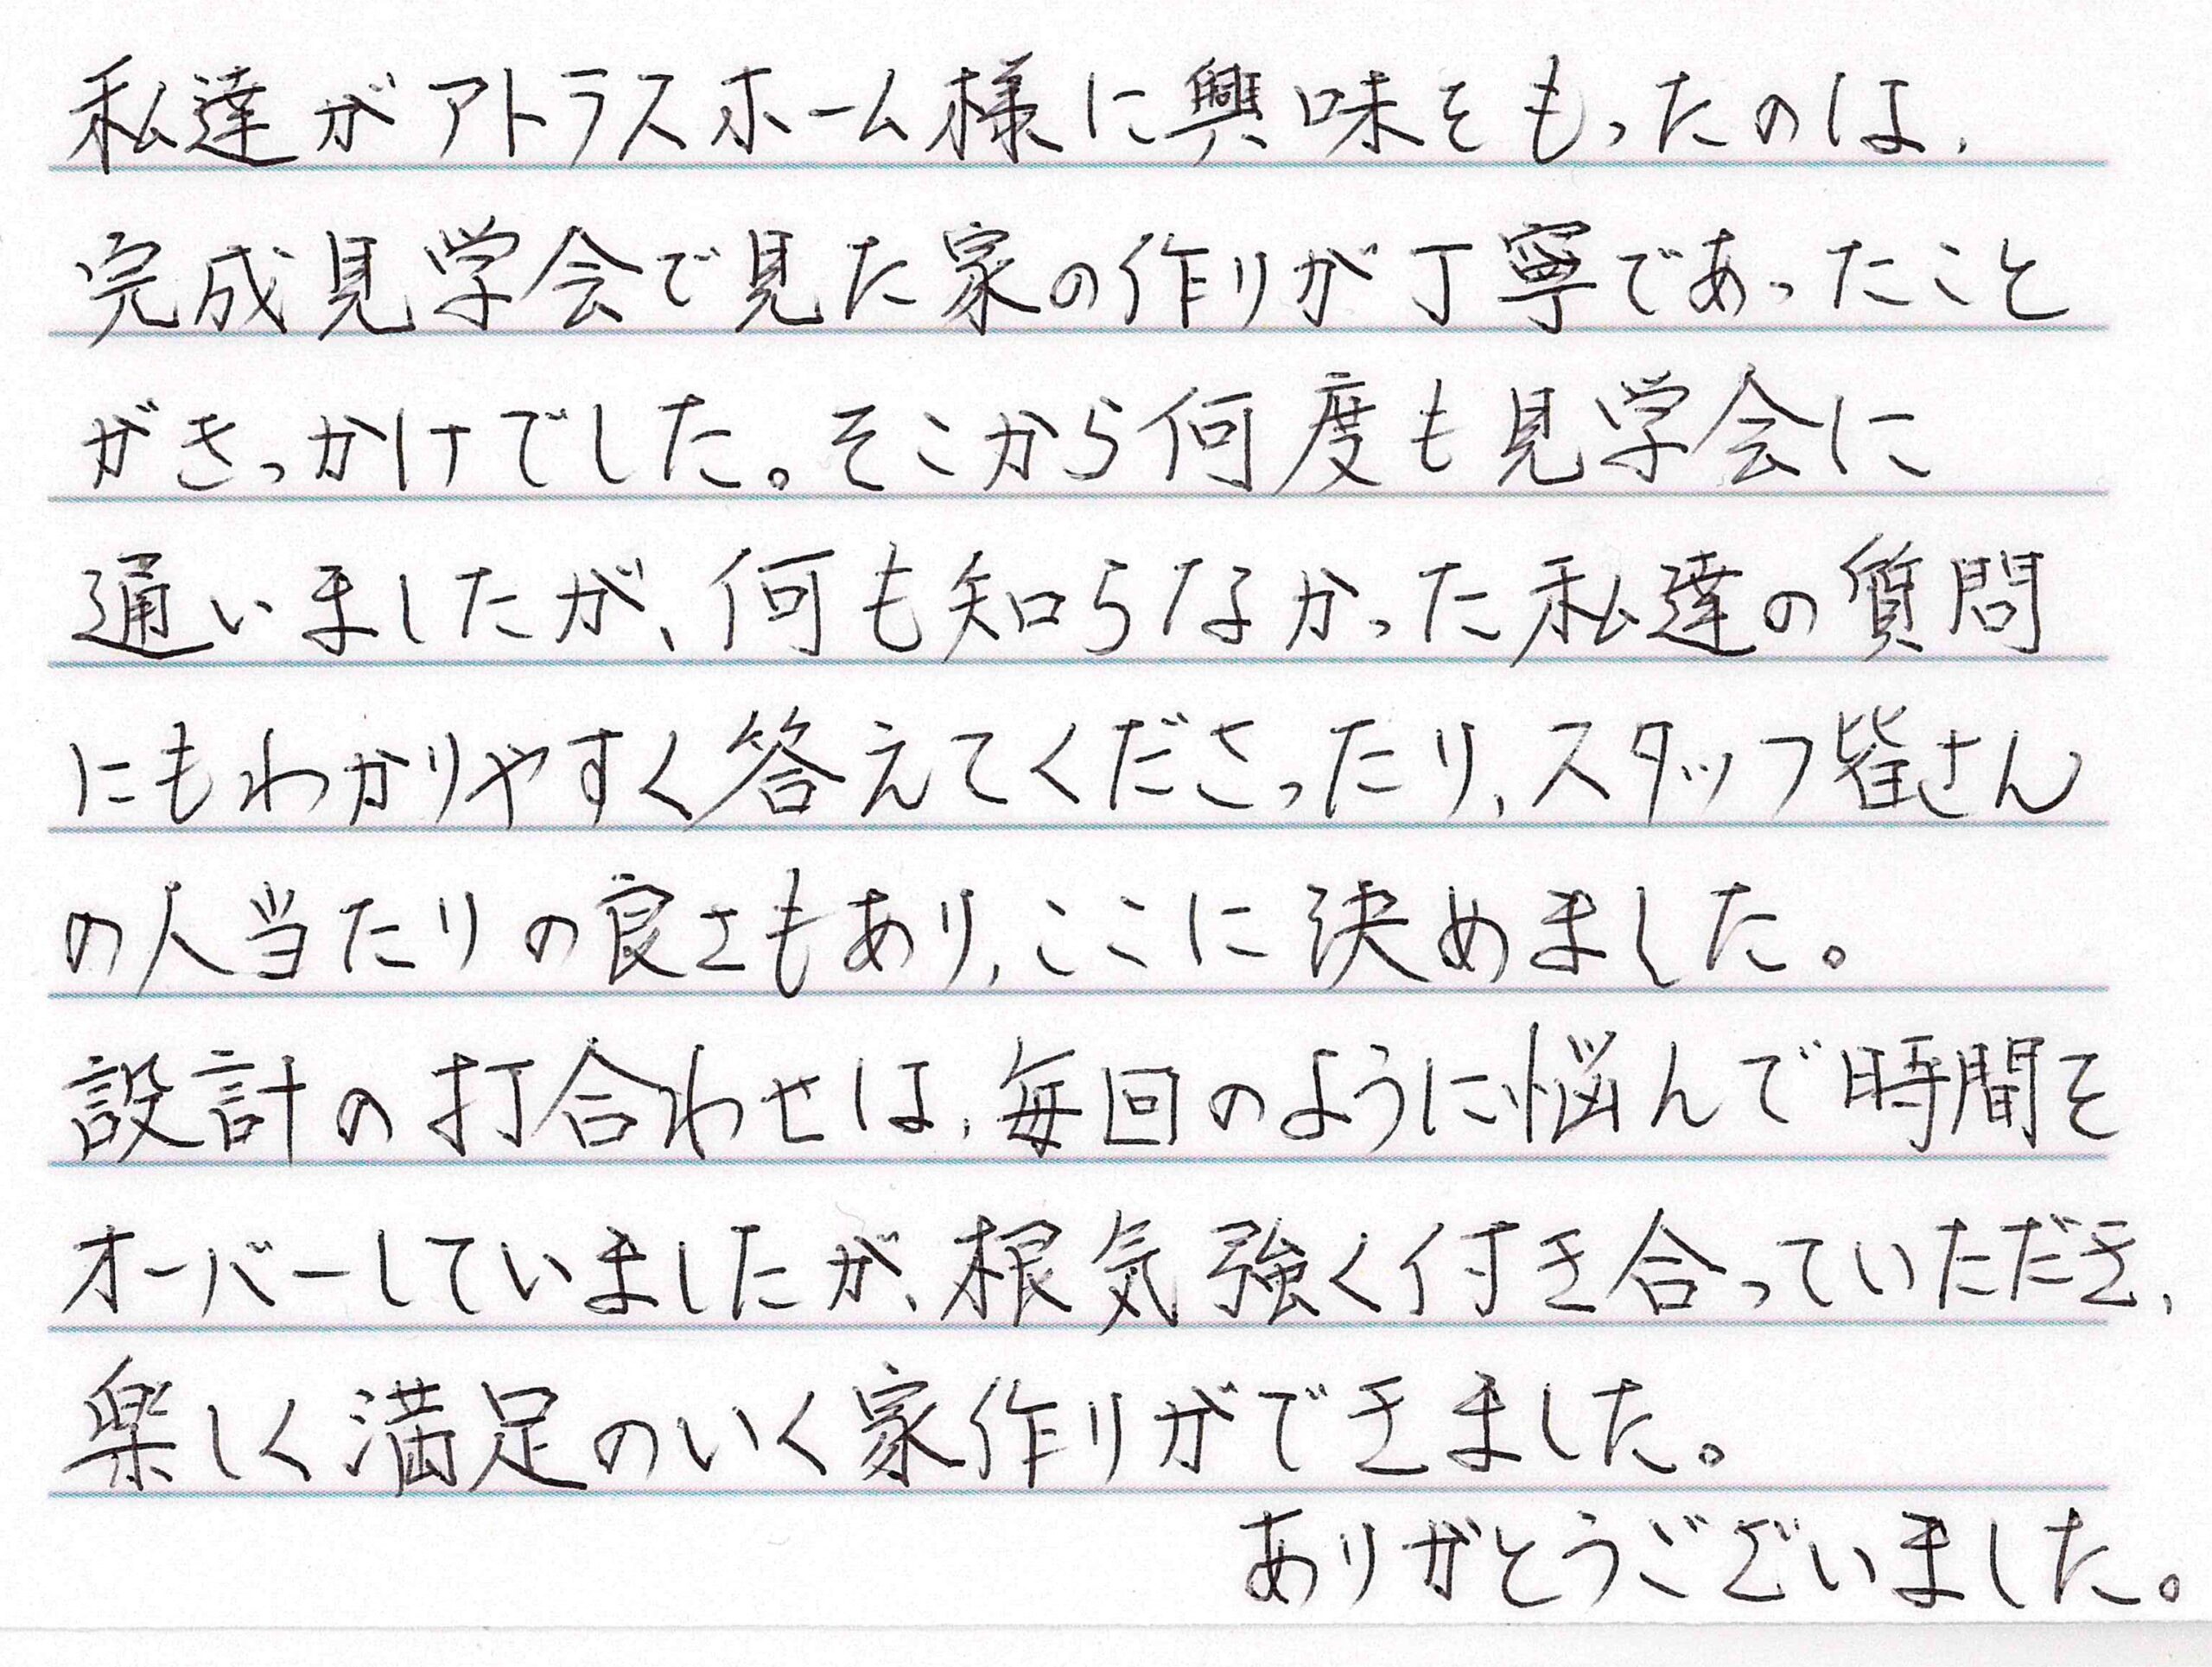 私達がアトラスホーム様に興味をもったのは、
完成見学会で見た家の作りが丁寧であったこと
がきっかけでした。そこから何度も見学会に
通いましたが、何も知らなかった私達の質問
にもわかりやすく答えてくださったり、スタッフ皆さん
の人当たりの良さもあり、ここに決めました。
設計の打合わせは、毎回のように悩んで時間を
オーバーしていましたが、根気強く付き合っていただき、
楽しく満足のいく家作りができました。
ありがとうございました。